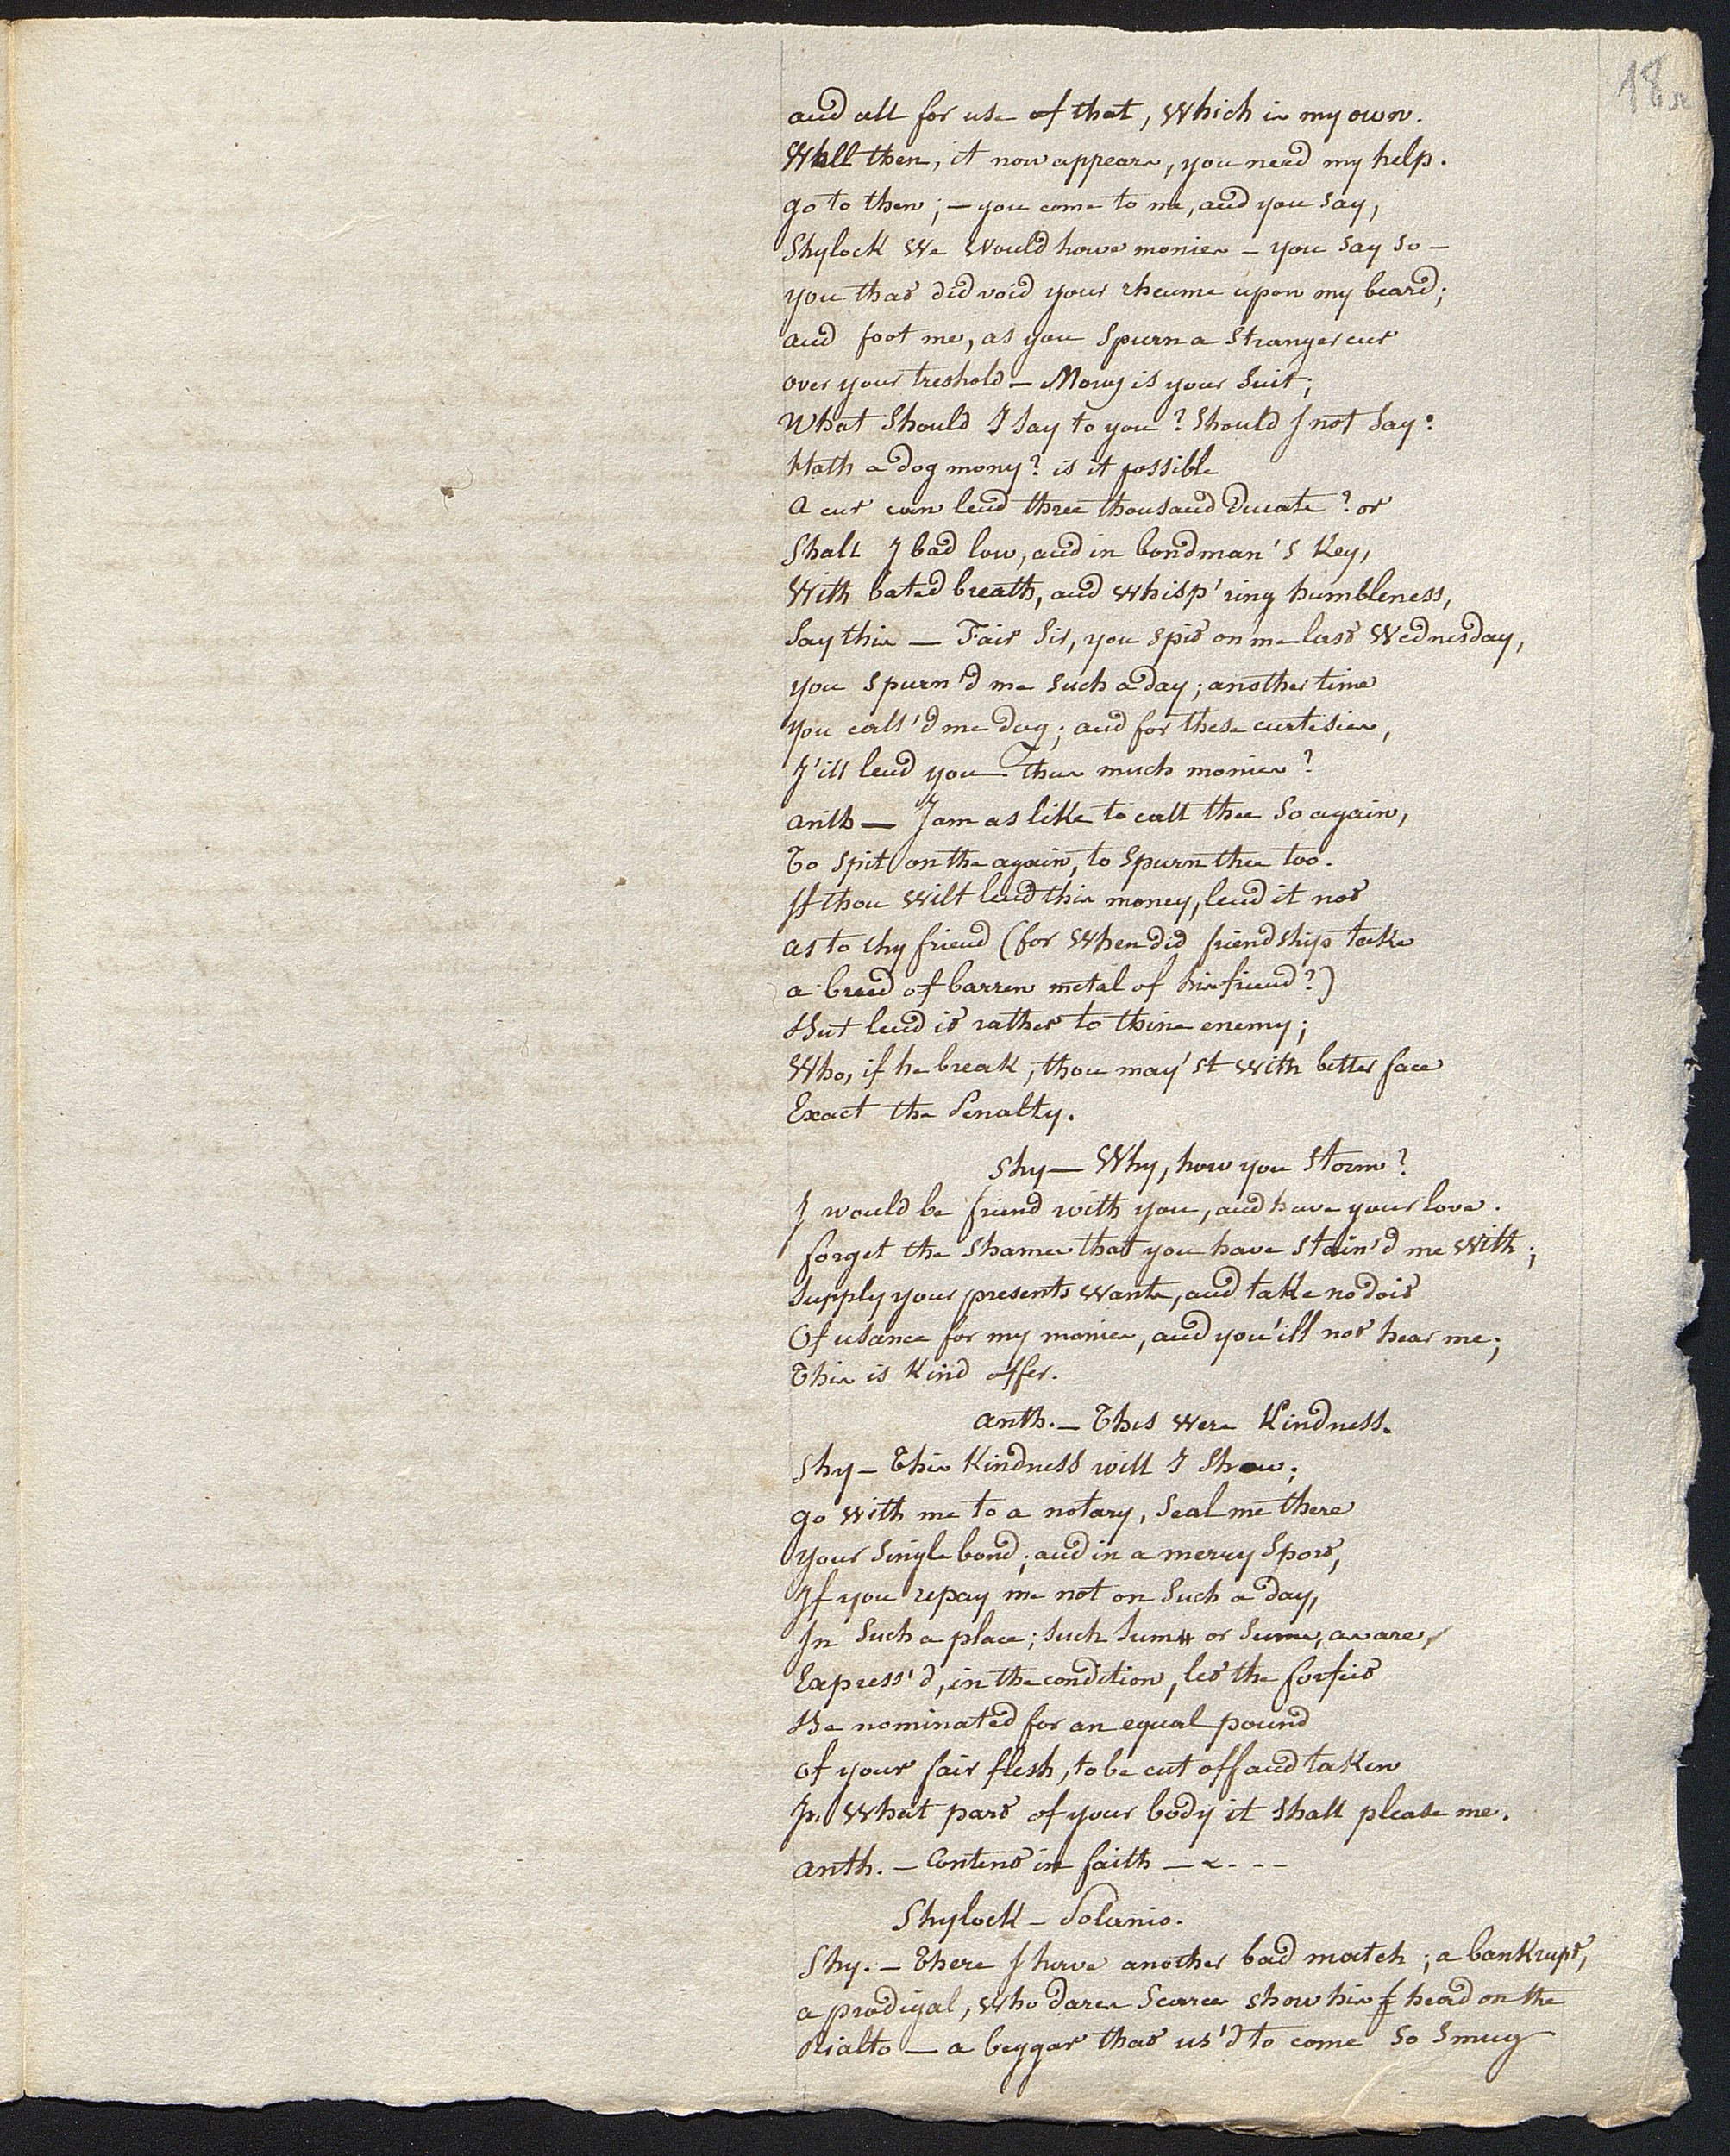 18r
and all for use of that, Which is my own.
Well then, it now appears, you need my help.
go to then; – you come to me, and you say,
Shylock We Would have monies – you say so –
you that did void your rheume upon my beard;
and foot me, as you spurn a stranger cur
over your treshold – Mony is your suit;
What should I say to you? Should I not say:
Hath a dog mony? is it possible
A cur can lend three thousand Ducats? or
Shall I bad low, and in bondman's key,
With bated breath, and Whisp'ring humbleness,
Say this – Fair Sir, you spit on me last Wednesday,
you spurn'd me such a day; another time
you call'd me dog; and for these curtesies,
I'ill lend you Thus much monies?
anth – I am as like to call thee so again,
To spit on the again, to spurn thee too.
If thou Wilt lend this money, lend it not
as to thy friend (for When did friendship take
a breed of barren metal of his friend?)
But lend it rather to thine enemy;
Who, if he break, thou may'st With better face
Exact the Penalty.
Shy – Why, how you storm?
I would be friend with you, and have your love.
forget the shames that you have stain'd me With;
supply your presents Wants, and take no doit
Of usance for my monies, and you'ill not hear me;
This is Kind offer.
anth. – This Were Kindness.
Shy – This Kindness will I show;
go With me to a notary, seal me there
your single bond; and in a merry sport,
If you repay me not on such a day,
In such a place; such sum or sums, as are,
Express'd, in the condition, let the forfeit
Be nominated for an equal pound
of your fair flesh, to be cut off and taken
In What part of your body it shall please me.
anth. – Content in faith –
Shylock – Solanio.
Shy. – There I have another bad match; a bankrupt,
a prodigal, Who dares scarce show his head on the
Rialto – a beggar that us'd to come so smug